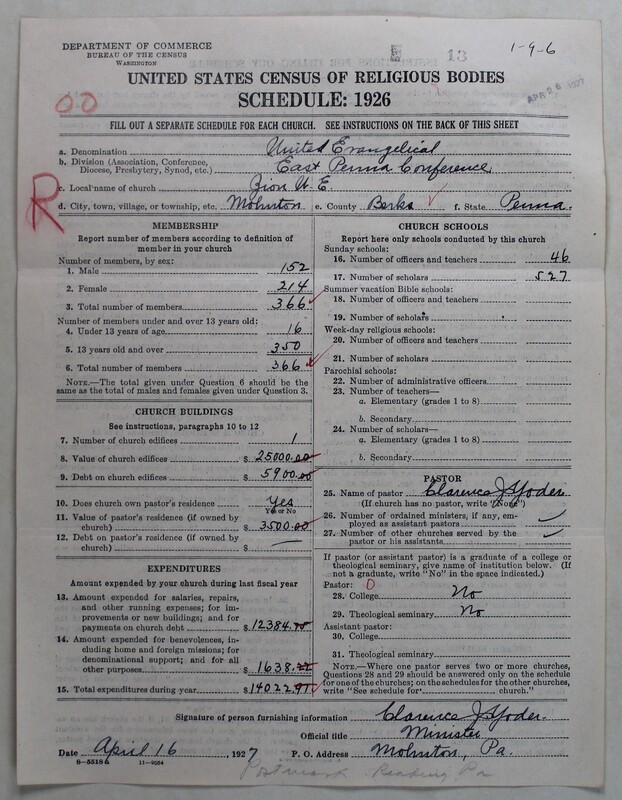 DEPARTMENT OF COMMERCE
BUREAU OF THE CENSUS
WASHINGTON
13
1-9-6
UNITED STATES CENSUS OF RELIGIOUS BODIES
SCHEDULE: 1926
APR 26 1927
00
FILL OUT A SEPARATE SCHEDULE FOR EACH CHURCH. SEE INSTRUCTIONS ON THE BACK OF THIS SHEET
R
a. Denomination United Evangelical
b. Division (Association, Conference, Diocese, Presbytery, Synod, etc.) East Penna Conference
c. Local name of church Zion U. E.
d. City, town, village, or township, etc. Mohnton e. County Berks f. State Penna.
MEMBERSHIP
Report number of members according to definition of
member in your church
Number of members, by sex:
1. Male 152
2. Female 214
3. Total number of members 366
Number of members under and over 13 years old:
4. Under 13 years of age 16
5. 13 years old and over 350
6. Total number of members 366
NOTE.—The total given under Question 6 should be the
same as the total of males and females given under Question 3.
CHURCH BUILDINGS
See instructions, paragraphs 10 to 12
7. Number of church edifices 1
8. Value of church edifices $ 25000.00
9. Debt on church edifices $ 5900.00
10. Does church own pastor's residence Yes
Yes or No
11. Value of pastor's residence (if owned by
church) $ 3500.00
12. Debt on pastor's residence (if owned by
church) $ —
EXPENDITURES
Amount expended by your church during last fiscal year
13. Amount expended for salaries, repairs,
and other running expenses; for im-
provements or new buildings; and for
payments on church debt $ 12384.75
14. Amount expended for benevolences, in-
cluding home and foreign missions; for
denominational support; and for all
other purposes $ 1638.22
15. Total expenditures during year $ 14022.97
CHURCH SCHOOLS
Report here only schools conducted by this church
Sunday schools:
16. Number of officers and teachers 46
17. Number of scholars 527
Summer vacation Bible schools:
18. Number of officers and teachers
19. Number of scholars
Week-day religious schools:
20. Number of officers and teachers
21. Number of scholars
Parochial schools:
22. Number of administrative officers
23. Number of teachers—
a. Elementary (grades 1 to 8)
b. Secondary
24. Number of scholars—
a. Elementary (grades 1 to 8)
b. Secondary
PASTOR
25. Name of pastor Clarence J. Yoder
(If church has no pastor, write "None")
26. Number of ordained ministers, if any, em-
ployed as assistant pastors
27. Number of other churches served by the
pastor or his assistants
If pastor (or assistant pastor) is a graduate of a college or
theological seminary, give name of institution below. (If
not a graduate, write "No" in the space indicated.)
Pastor: 0
28. College No
29. Theological seminary No
Assistant pastor:
30. College
31. Theological seminary
NOTE.—Where one pastor serves two or more churches,
Questions 28 and 29 should be answered only on the schedule
for one of the churches; on the schedules for the other churches,
write "See schedule for church."
Signature of person furnishing information Clarence J. Yoder.
Official title Minister
Date April 16, 1927 P. O. Address Mohnton, Pa.
8-5518a 11-9554
Postmark Reading, Pa